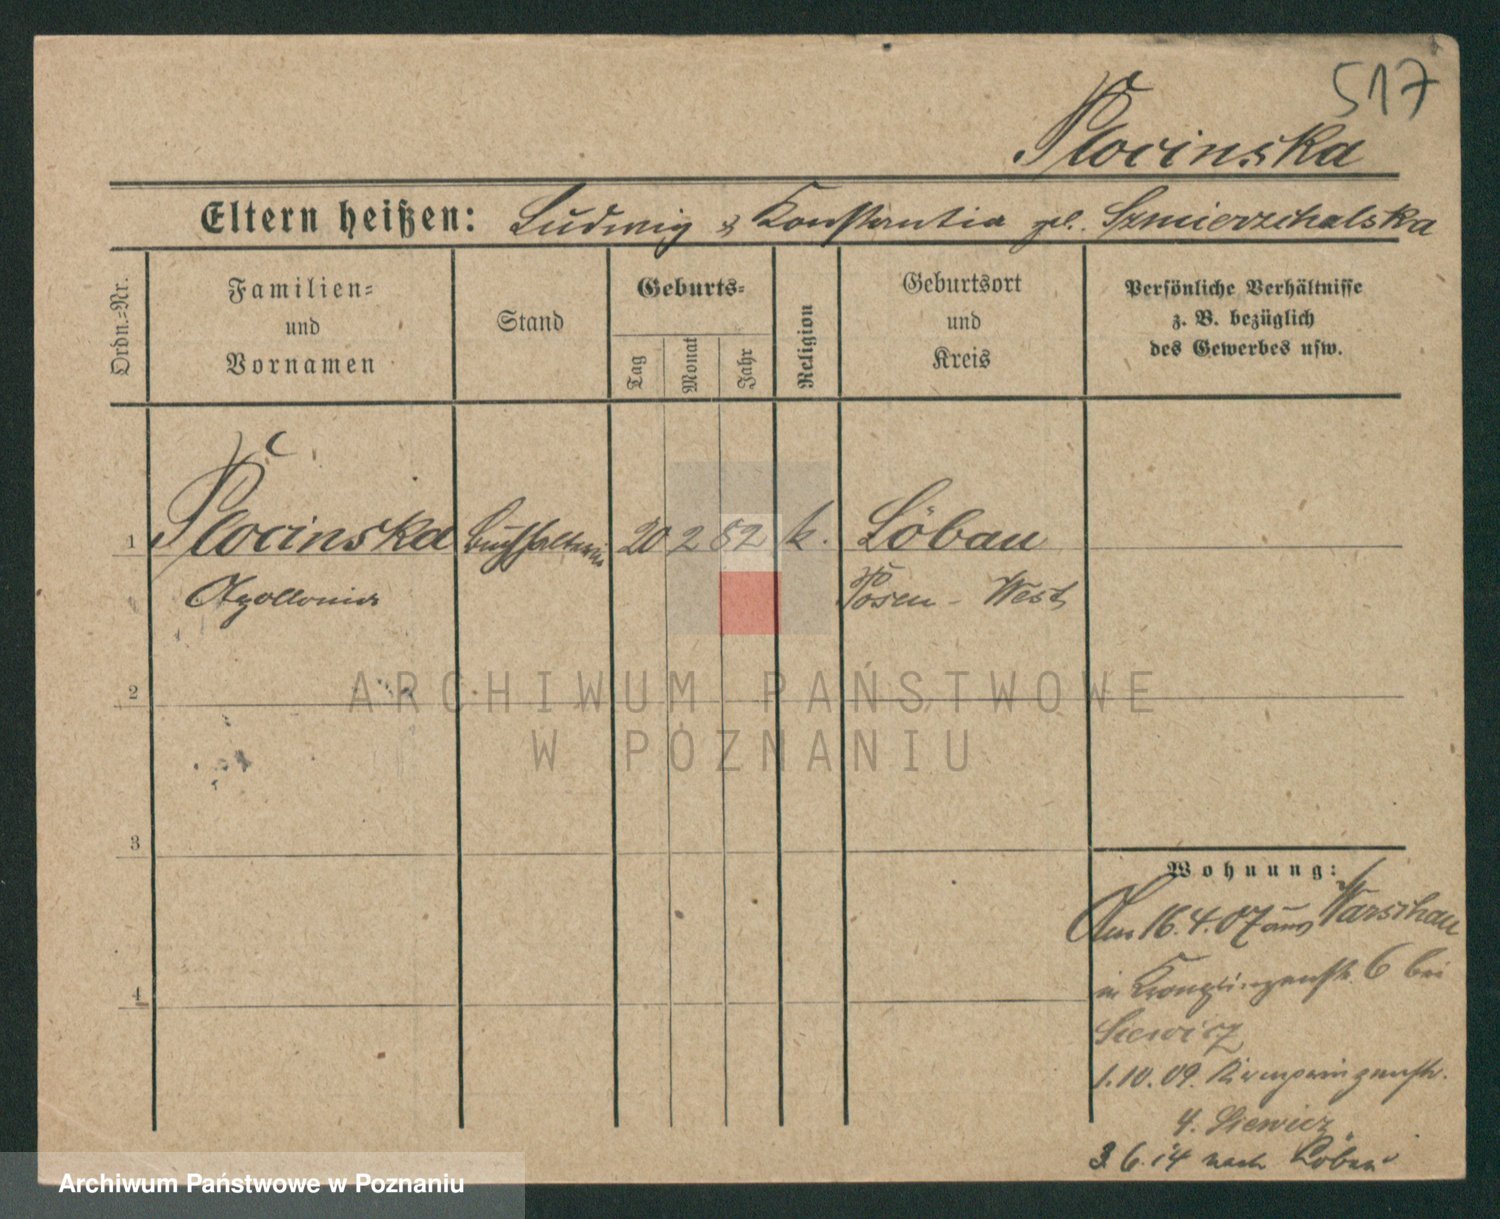 517
Plocinska
Eltern heißen: Ludwig & Konstantia geb. Szmierzchalska
Ordn.-Nr.
Familien-
und
Vornamen
Stand
Geburts-
Tag
Monat
Jahr
Religion
Geburtsort
und
Kreis
Persönliche Verhältnisse
z. B. bezüglich
des Gewerbes usw.
1 Plocinska Buchhalterin 20 2 82 k. Löbau
Apollonia Posen - West
2
3
4
Wohnung:
Am 16.4.07 aus Warschau
in Kronprinzenstr. 6 bei
Siewicz
1.10.09. Kronprinzenstr.
4. Siewicz
3.6.14 nach Löbau
ARCHIWUM PAŃSTWOWE
W POZNANIU
Archiwum Państwowe w Poznaniu